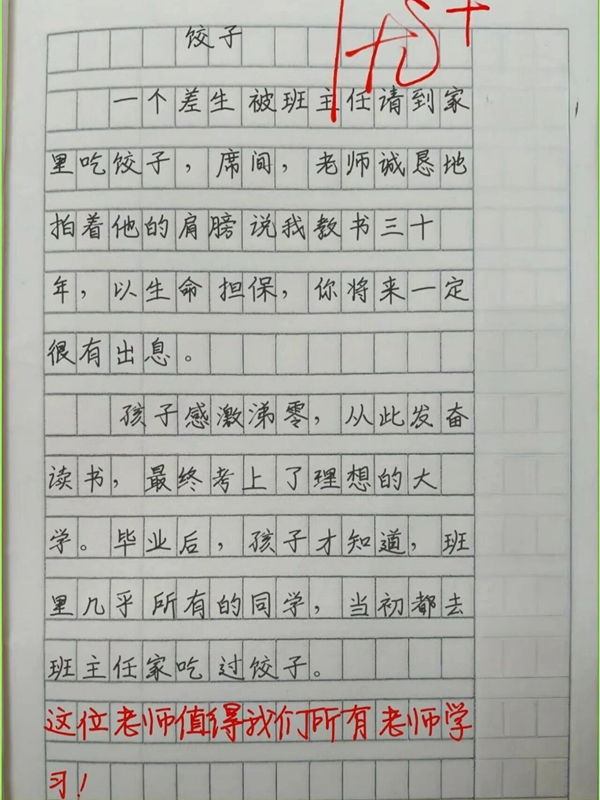 饺子
优+
一个差生被班主任请到家
里吃饺子，席间，老师诚恳地
拍着他的肩膀说我教书三十
年，以生命担保，你将来一定
很有出息。
孩子感激涕零，从此发奋
读书，最终考上了理想的大
学。毕业后，孩子才知道，班
里几乎所有的同学，当初都去
班主任家吃过饺子。
这位老师值得我们所有老师学
习！